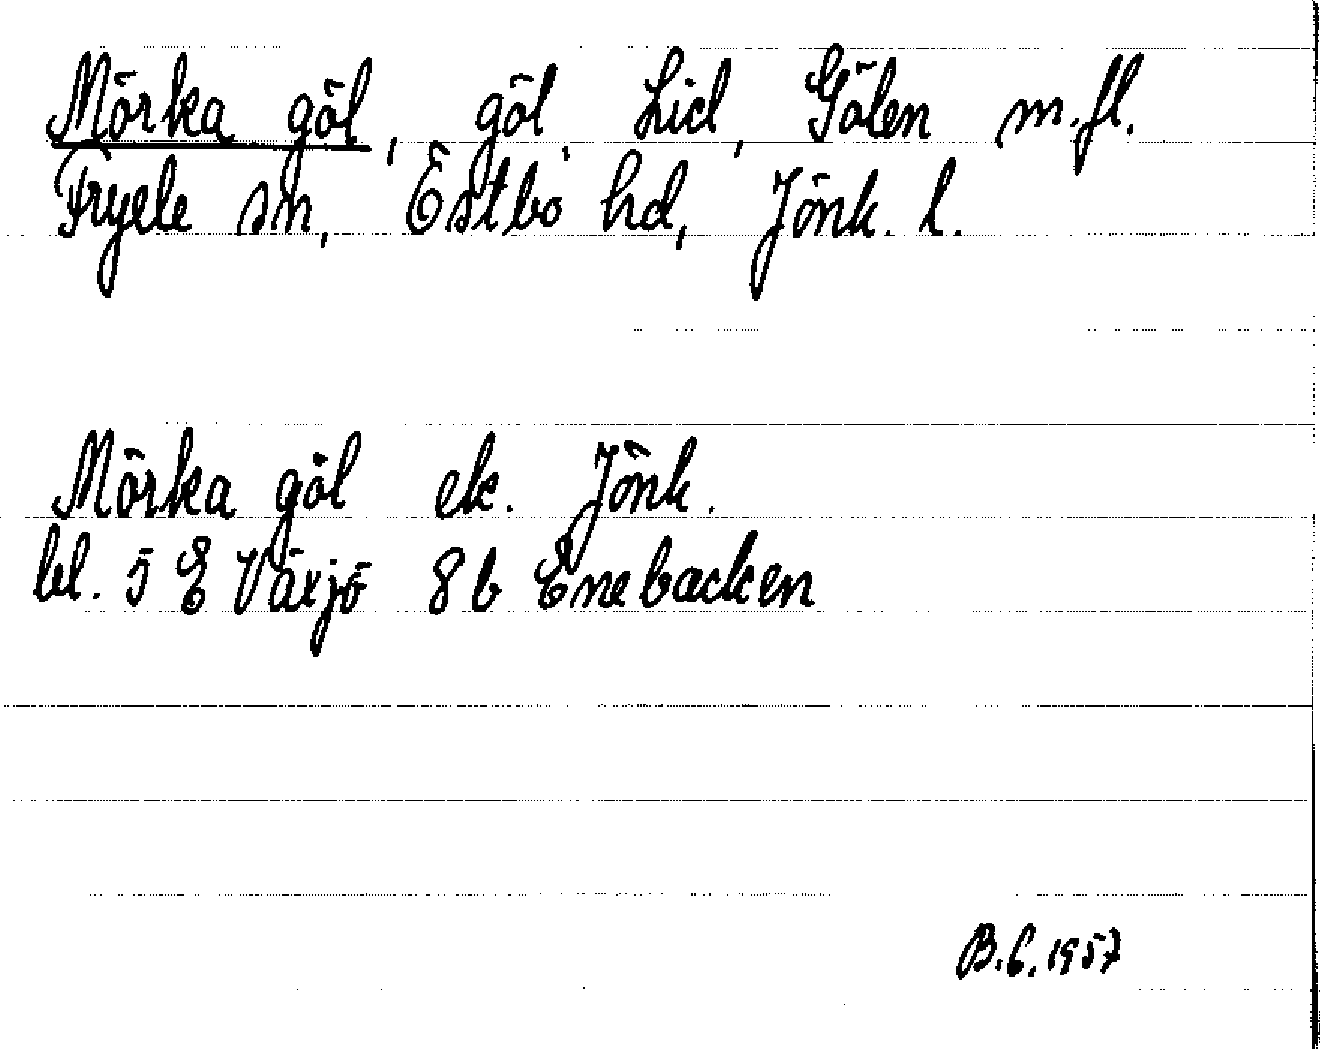 Mörka göl, göl, Lid, Gölen m.fl.
Fryele sn, Östbo hd, Jönk. l.
Mörka göl ek. Jönk.
bl. 5 E Växjö 8b Enebacken
B.C. 1957